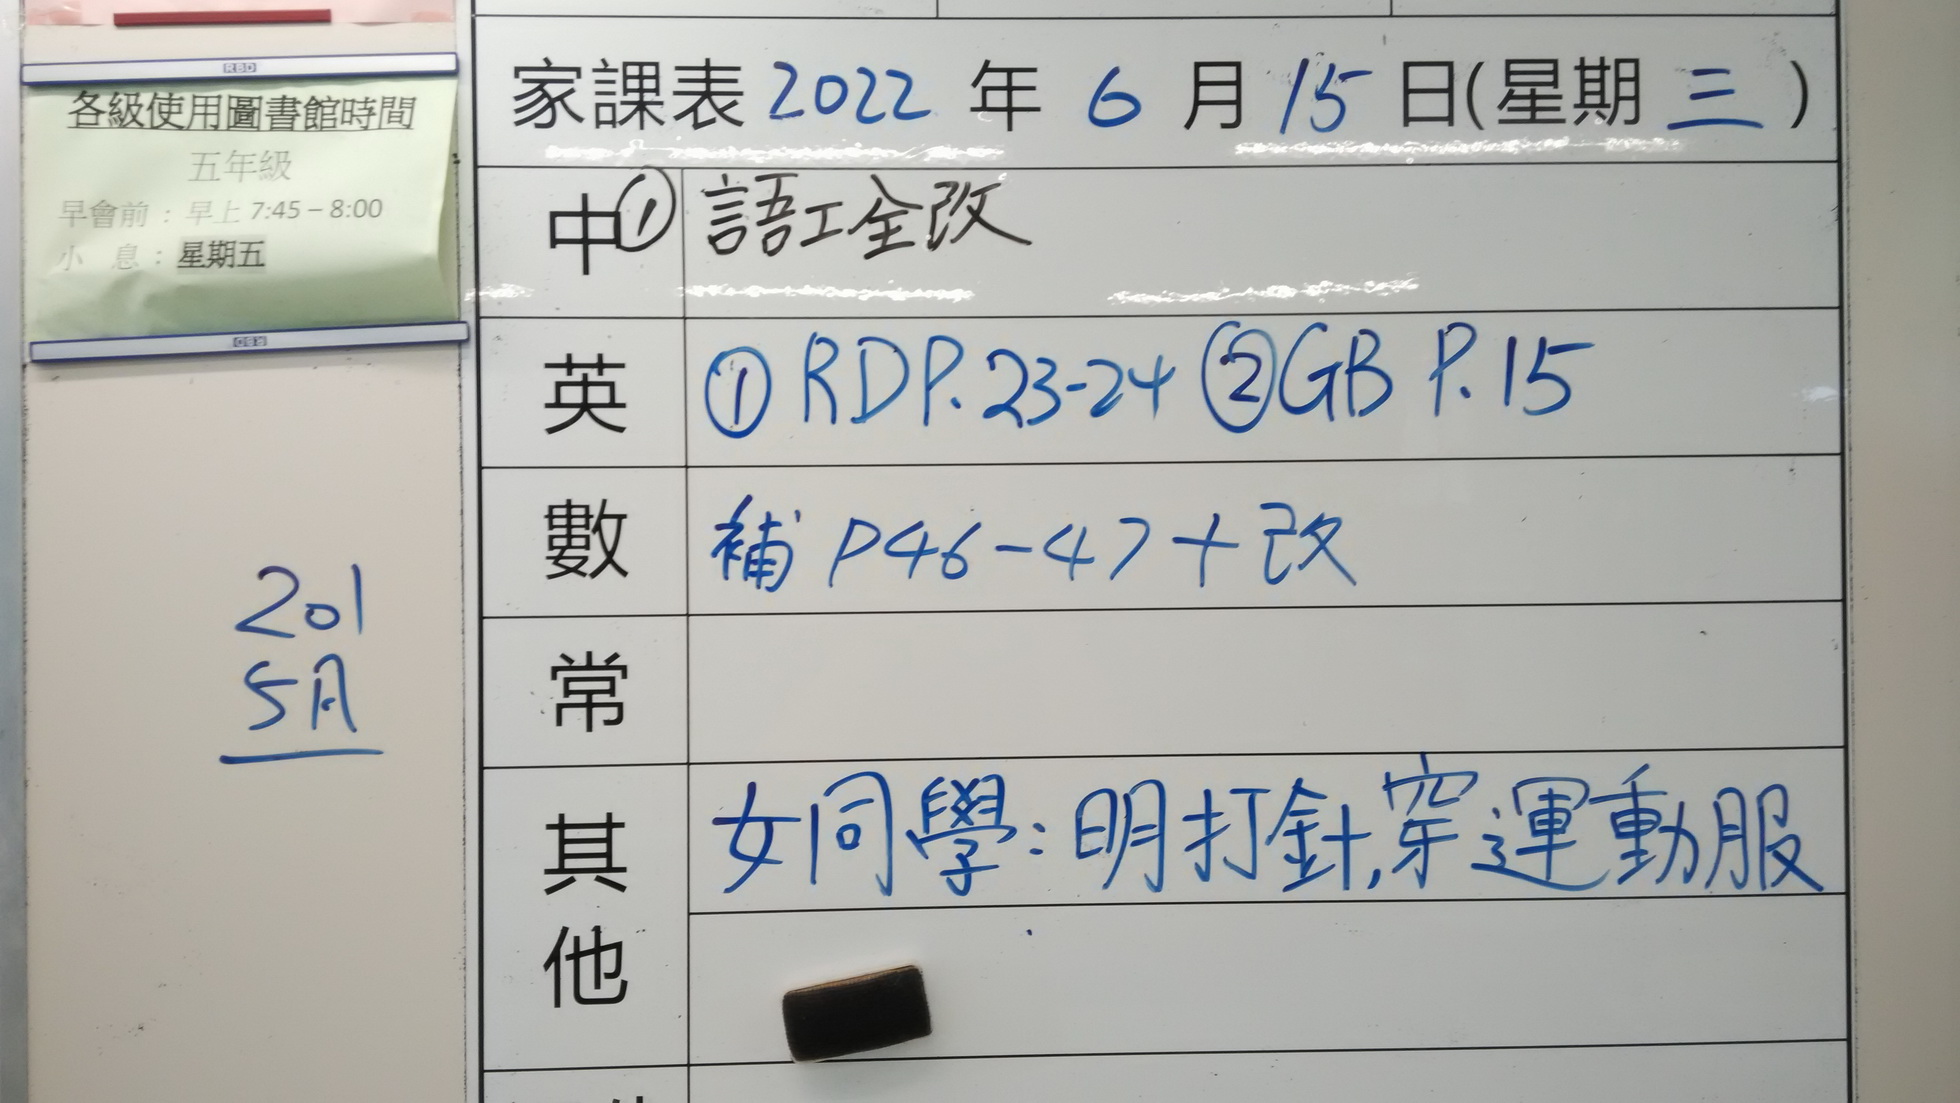 RBD
各級使用圖書館時間
五年級
早會前：早上 7:45 – 8:00
小 息：星期五
RBD
201
5月
家課表 2022 年 6 月 15 日(星期 三 )
中 ① 語工全改
英 ① RD P. 23-24 ② GB P. 15
數 補 P46-47+改
常
其他 女同學：明打針，穿運動服